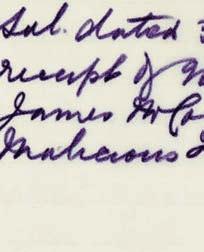 Sub. dated 3
receipt of
James McCo
Malicious